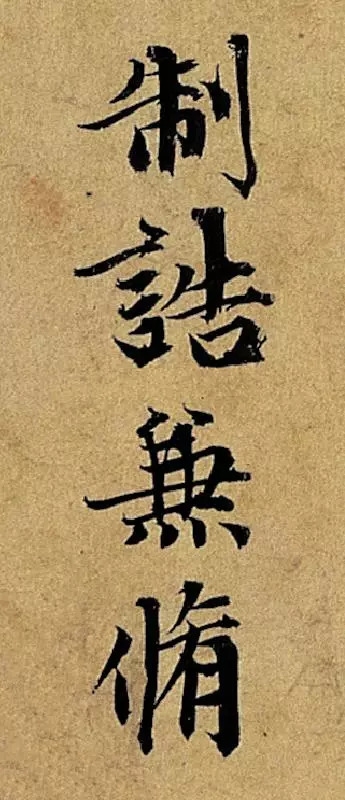 制誥兼脩